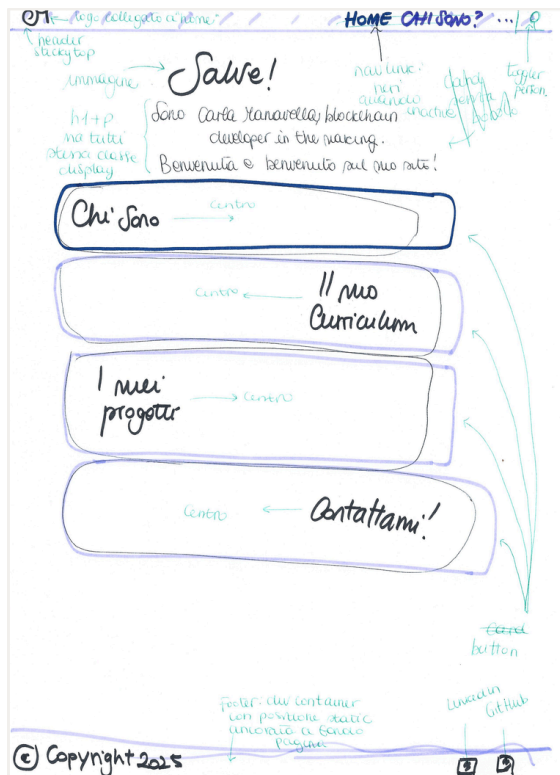 CM ← logo collegato a home
HOME CHI SONO? ...
header
sticky top
immagine →
Salve!
nav link:
neri
quando
inactive
toggler
person.
h1+p
ma tutti
stessa classe
display
Sono Carla Manavella, blockchain
developer in the making.
Benvenuta e benvenuto sul mio sito!
Chi Sono
Centro
→
Centro ←
Il mio
Curriculum
I miei
progetti
→ Centro
Centro ←
Contattami!
Card
button
Footer: div container
con position static
ancorata a fondo
pagina
Linkedin
GitHub
© Copyright 2025